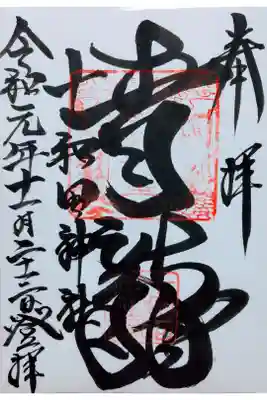 奉拝
青龍
十和田神社
令和元年十一月二十二日登拝